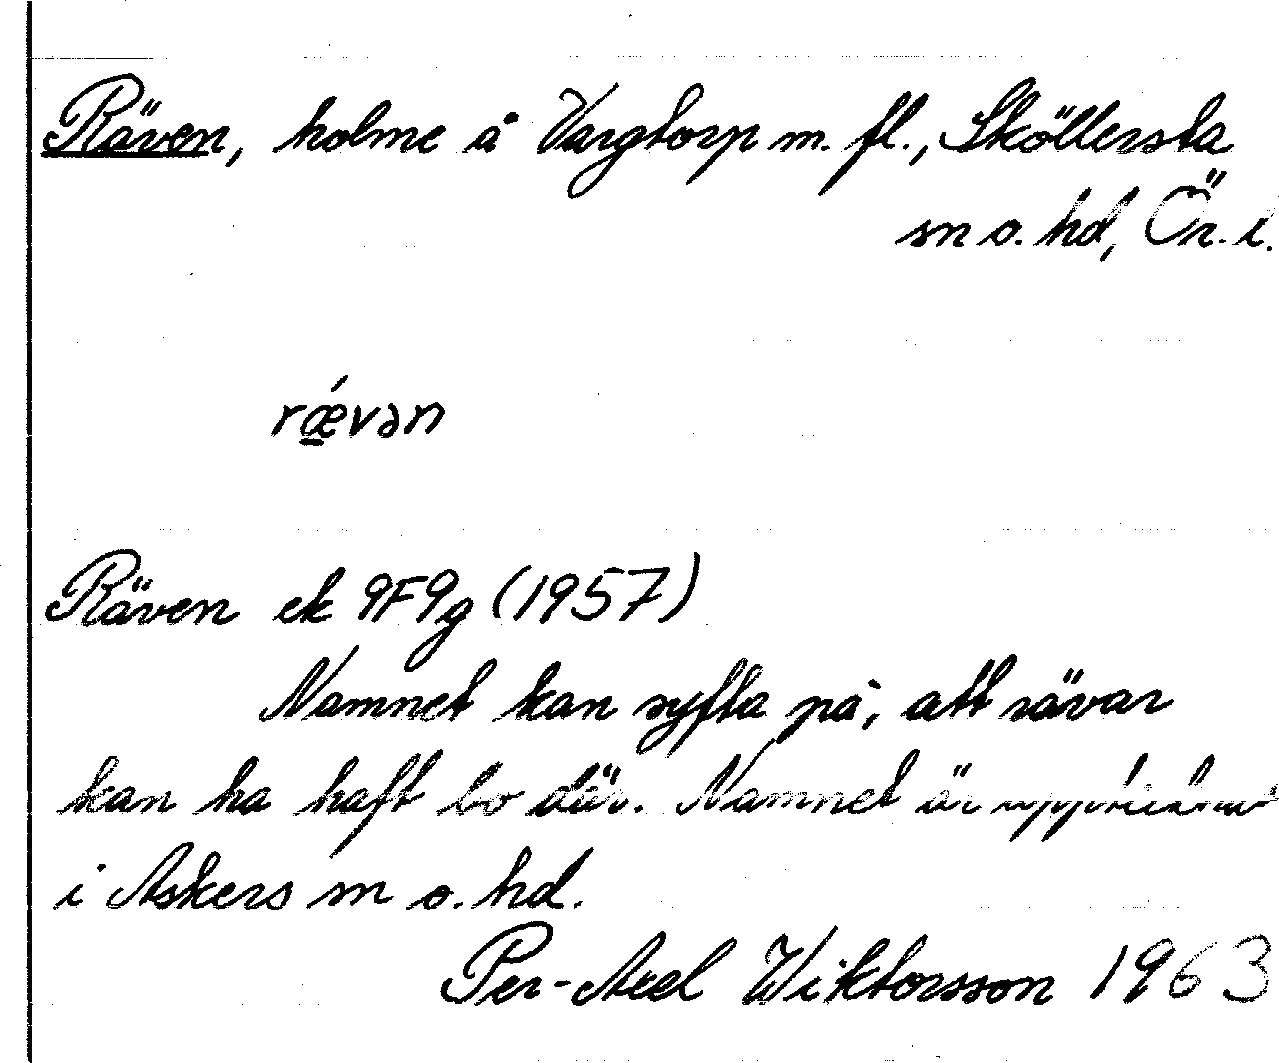 Räven, holme å Vargtorp m. fl., Sköllersta
sn o. hd, Ör. l.
rǽvən
Räven ek 9F9g (1957)
Namnet kan syfta på, att rävar
kan ha haft bo där. Namnet är upptecknat
i Askers sn o. hd.
Per-Axel Wiktorsson 1963